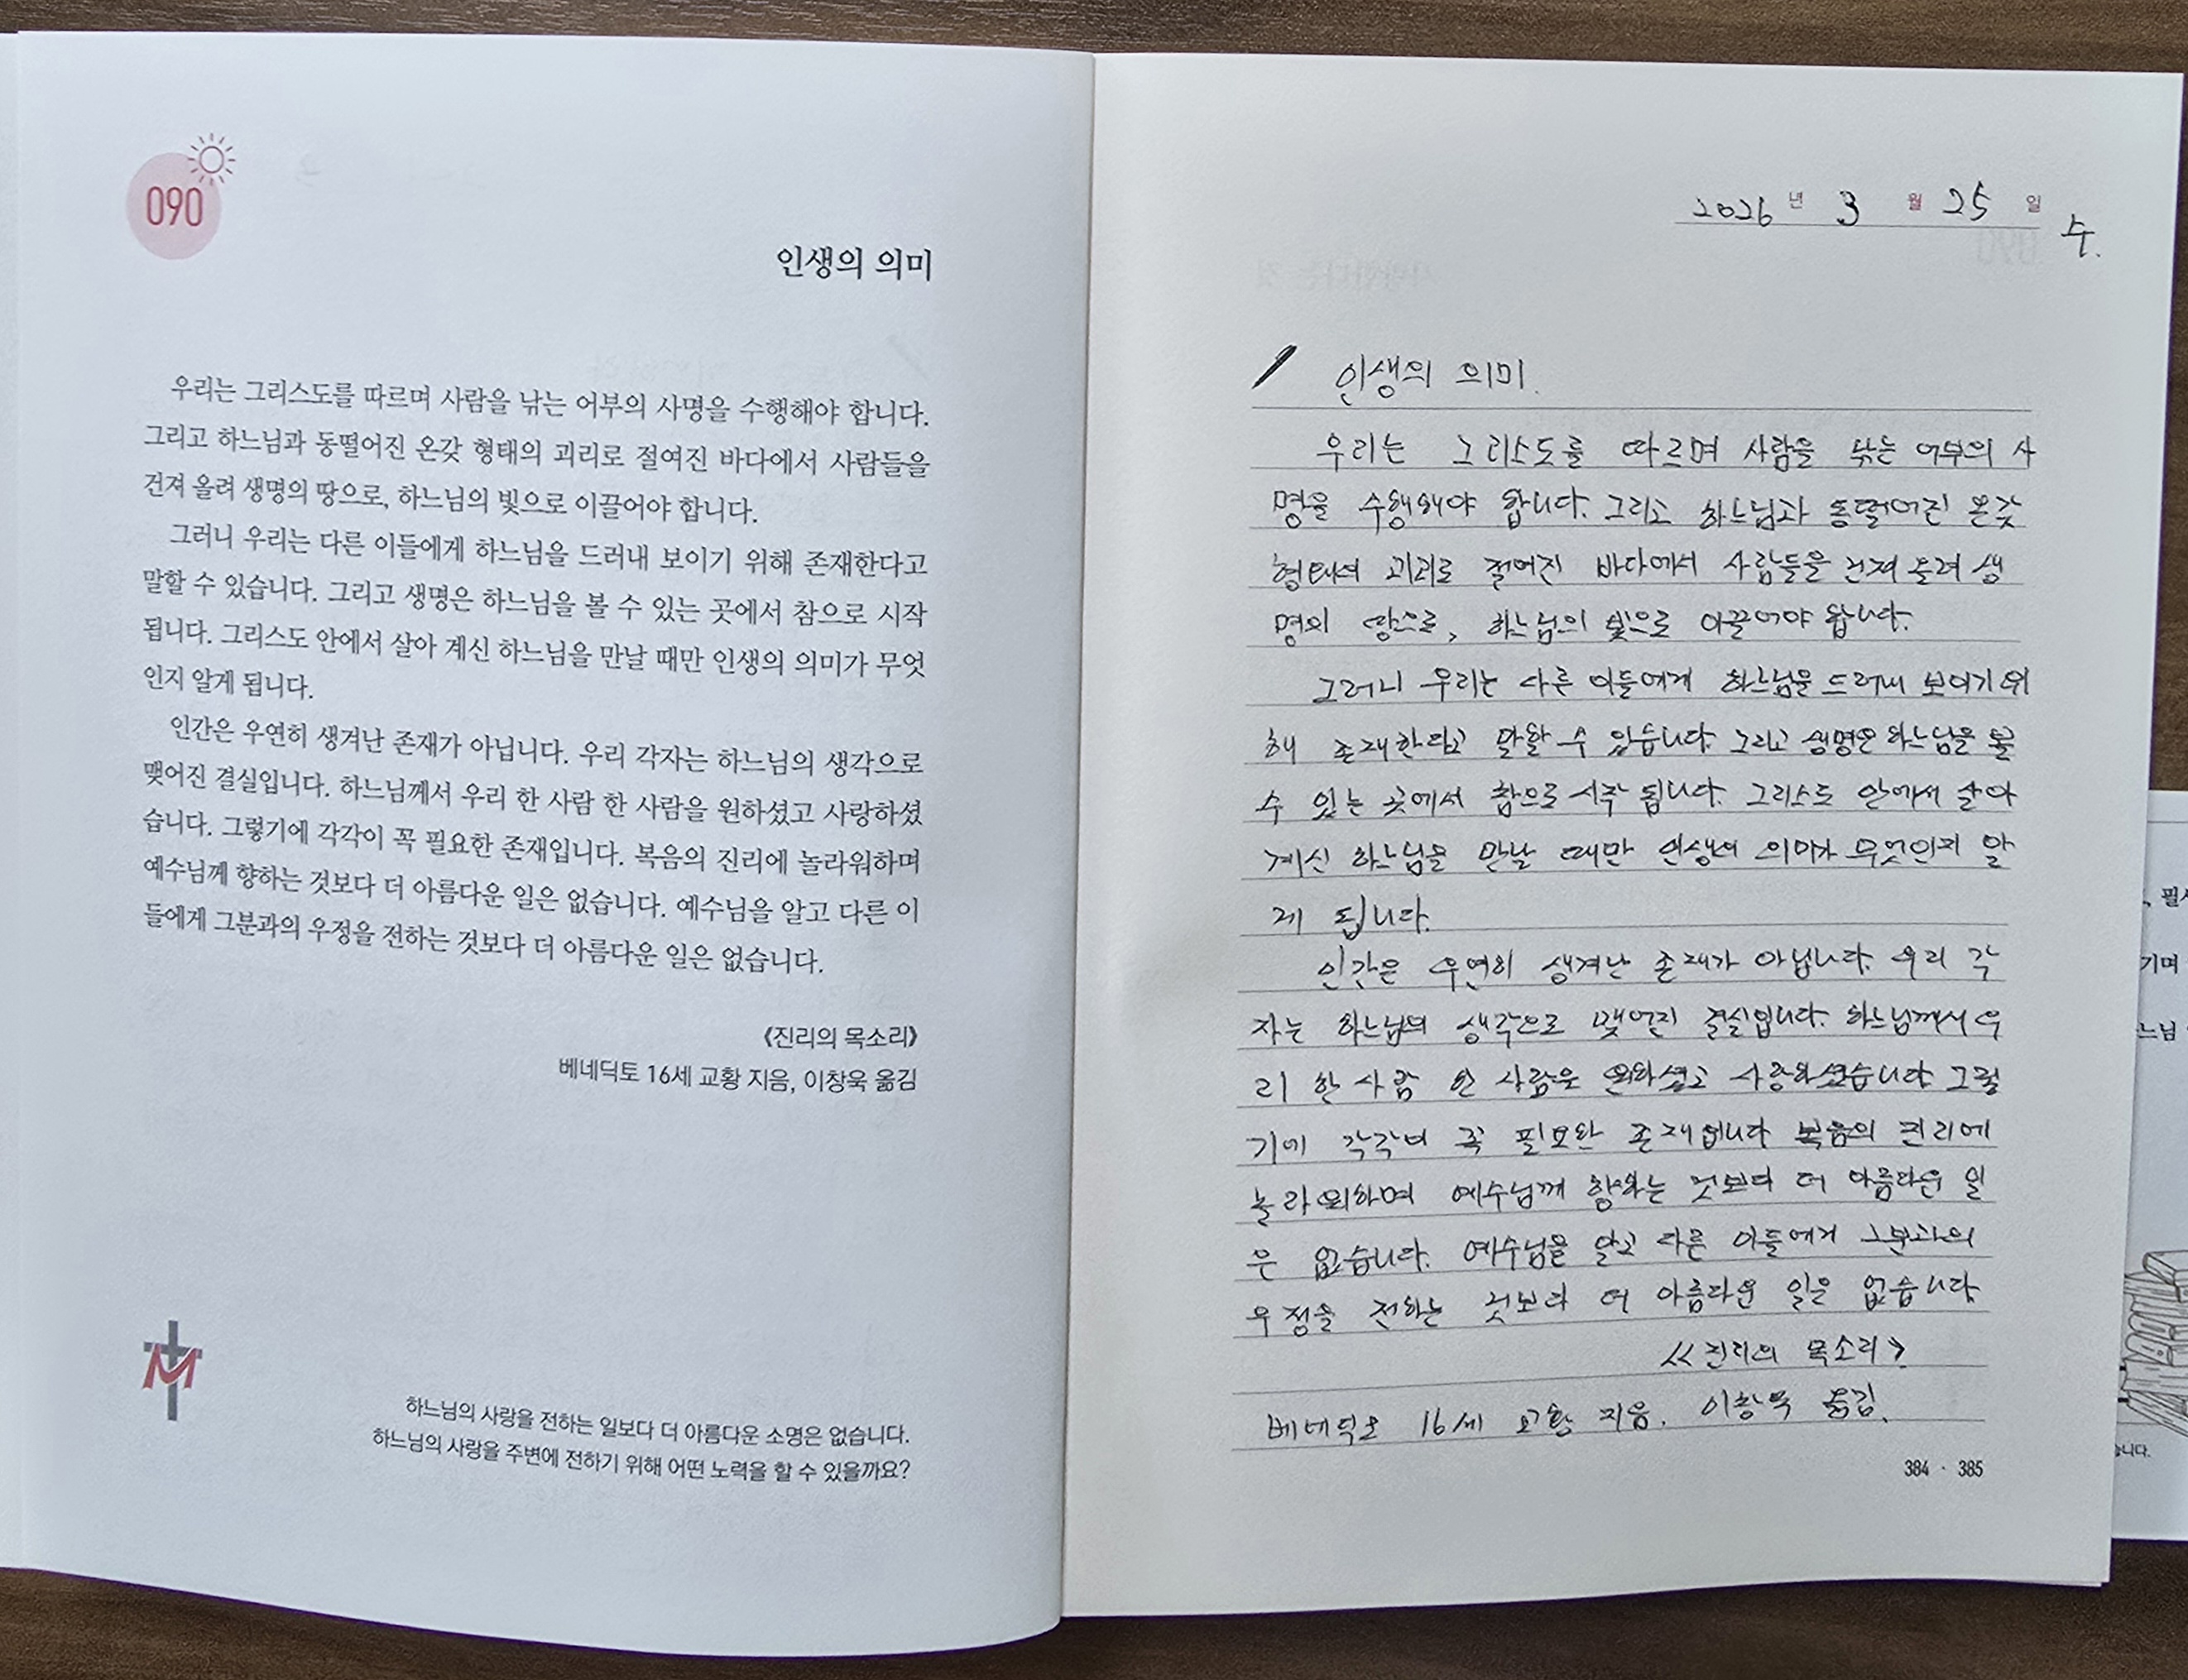 090
인생의 의미
우리는 그리스도를 따르며 사람을 낚는 어부의 사명을 수행해야 합니다.
그리고 하느님과 동떨어진 온갖 형태의 괴리로 절여진 바다에서 사람들을
건져 올려 생명의 땅으로, 하느님의 빛으로 이끌어야 합니다.
그러니 우리는 다른 이들에게 하느님을 드러내 보이기 위해 존재한다고
말할 수 있습니다. 그리고 생명은 하느님을 볼 수 있는 곳에서 참으로 시작
됩니다. 그리스도 안에서 살아 계신 하느님을 만날 때만 인생의 의미가 무엇
인지 알게 됩니다.
인간은 우연히 생겨난 존재가 아닙니다. 우리 각자는 하느님의 생각으로
맺어진 결실입니다. 하느님께서 우리 한 사람 한 사람을 원하셨고 사랑하셨
습니다. 그렇기에 각각이 꼭 필요한 존재입니다. 복음의 진리에 놀라워하며
예수님께 향하는 것보다 더 아름다운 일은 없습니다. 예수님을 알고 다른 이
들에게 그분과의 우정을 전하는 것보다 더 아름다운 일은 없습니다.
《진리의 목소리》
베네딕토 16세 교황 지음, 이창욱 옮김
하느님의 사랑을 전하는 일보다 더 아름다운 소명은 없습니다.
하느님의 사랑을 주변에 전하기 위해 어떤 노력을 할 수 있을까요?
2026 년 3 월 25 일
수.
인생의 의미.
우리는 그리스도를 따르며 사람을 낚는 어부의 사
명을 수행해야 합니다. 그리고 하느님과 동떨어진 온갖
형태의 괴리로 절여진 바다에서 사람들을 건져 올려 생
명의 땅으로, 하느님의 빛으로 이끌어야 합니다.
그러니 우리는 다른 이들에게 하느님을 드러내 보이기 위
해 존재한다고 말할 수 있습니다. 그리고 생명은 하느님을 볼
수 있는 곳에서 참으로 시작 됩니다. 그리스도 안에서 살아
계신 하느님을 만날 때만 인생의 의미가 무엇인지 알
게 됩니다.
인간은 우연히 생겨난 존재가 아닙니다. 우리 각
자는 하느님의 생각으로 맺어진 결실입니다. 하느님께서 우
리 한 사람 한 사람을 원하셨고 사랑하셨습니다 그렇
기에 각각이 꼭 필요한 존재입니다 복음의 진리에
놀라워하며 예수님께 향하는 것보다 더 아름다운 일
은 없습니다. 예수님을 알고 다른 이들에게 그분과의
우정을 전하는 것보다 더 아름다운 일은 없습니다
《진리의 목소리>
베네딕토 16세 교황 지음. 이창욱 옮김.
384 · 385
기며
느님
습니다.